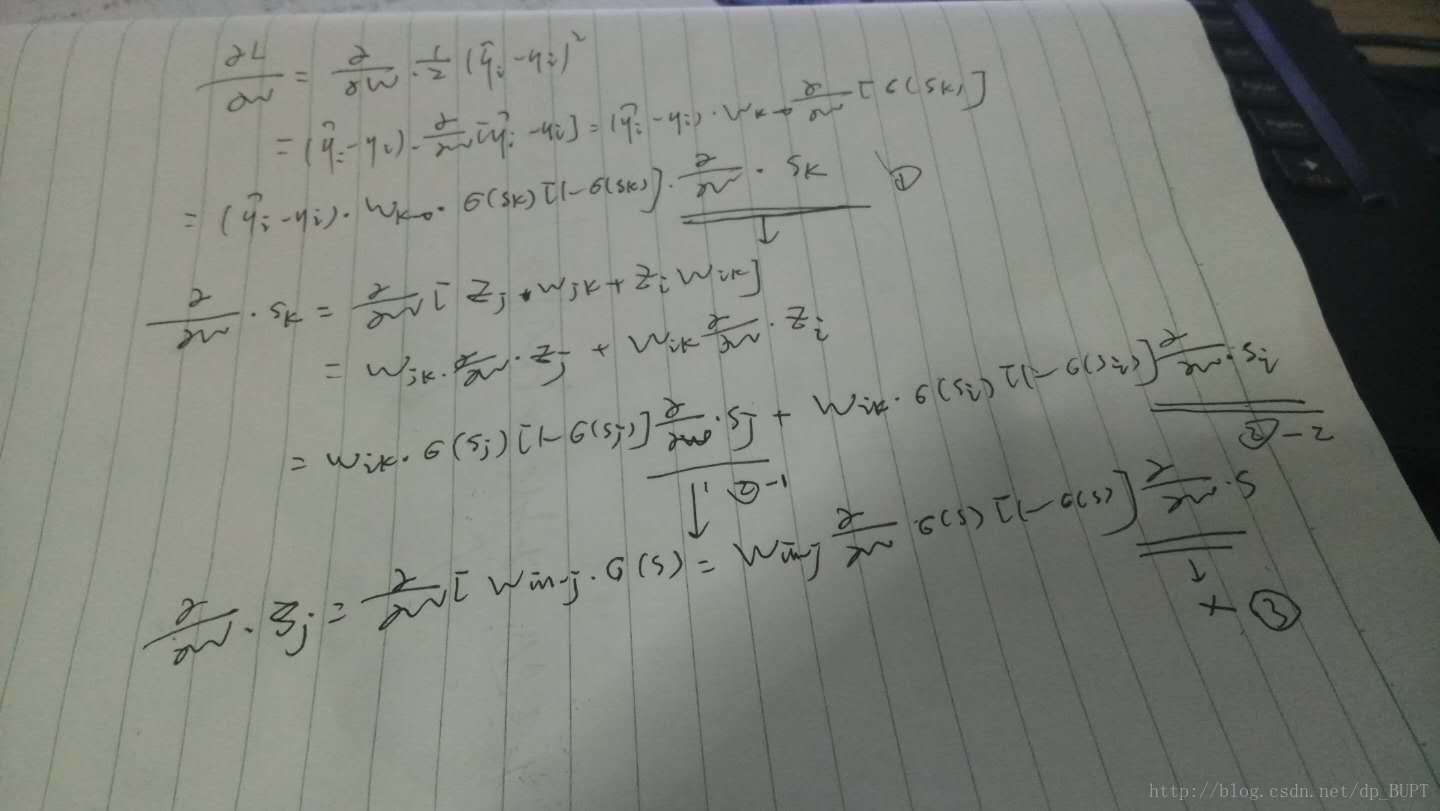 ∂L/∂w = ∂/∂w · 1/2 (ŷᵢ - yᵢ)²
= (ŷᵢ - yᵢ) · ∂/∂w [ŷᵢ - yᵢ] = (ŷᵢ - yᵢ) · w_{k→o} ∂/∂w [σ(s_k)]
= (ŷᵢ - yᵢ) · w_{k→o} · σ(s_k)[1-σ(s_k)] · ∂/∂w · s_k ①
↓
∂/∂w · s_k = ∂/∂w [z_j · w_{jk} + z_i w_{ik}]
= w_{jk} · ∂/∂w · z_j + w_{ik} ∂/∂w · z_i
= w_{jk} · σ(s_j)[1-σ(s_j)] ∂/∂w · s_j + w_{ik} · σ(s_i)[1-σ(s_i)] ∂/∂w · s_i
↓ ②-1 ②-2
∂/∂w · s_j = ∂/∂w [w_{in→j} · σ(s) = w_{in→j} ∂/∂w · σ(s)[1-σ(s)] ∂/∂w · s
↓
x ③
http://blog.csdn.net/dp_BUPT